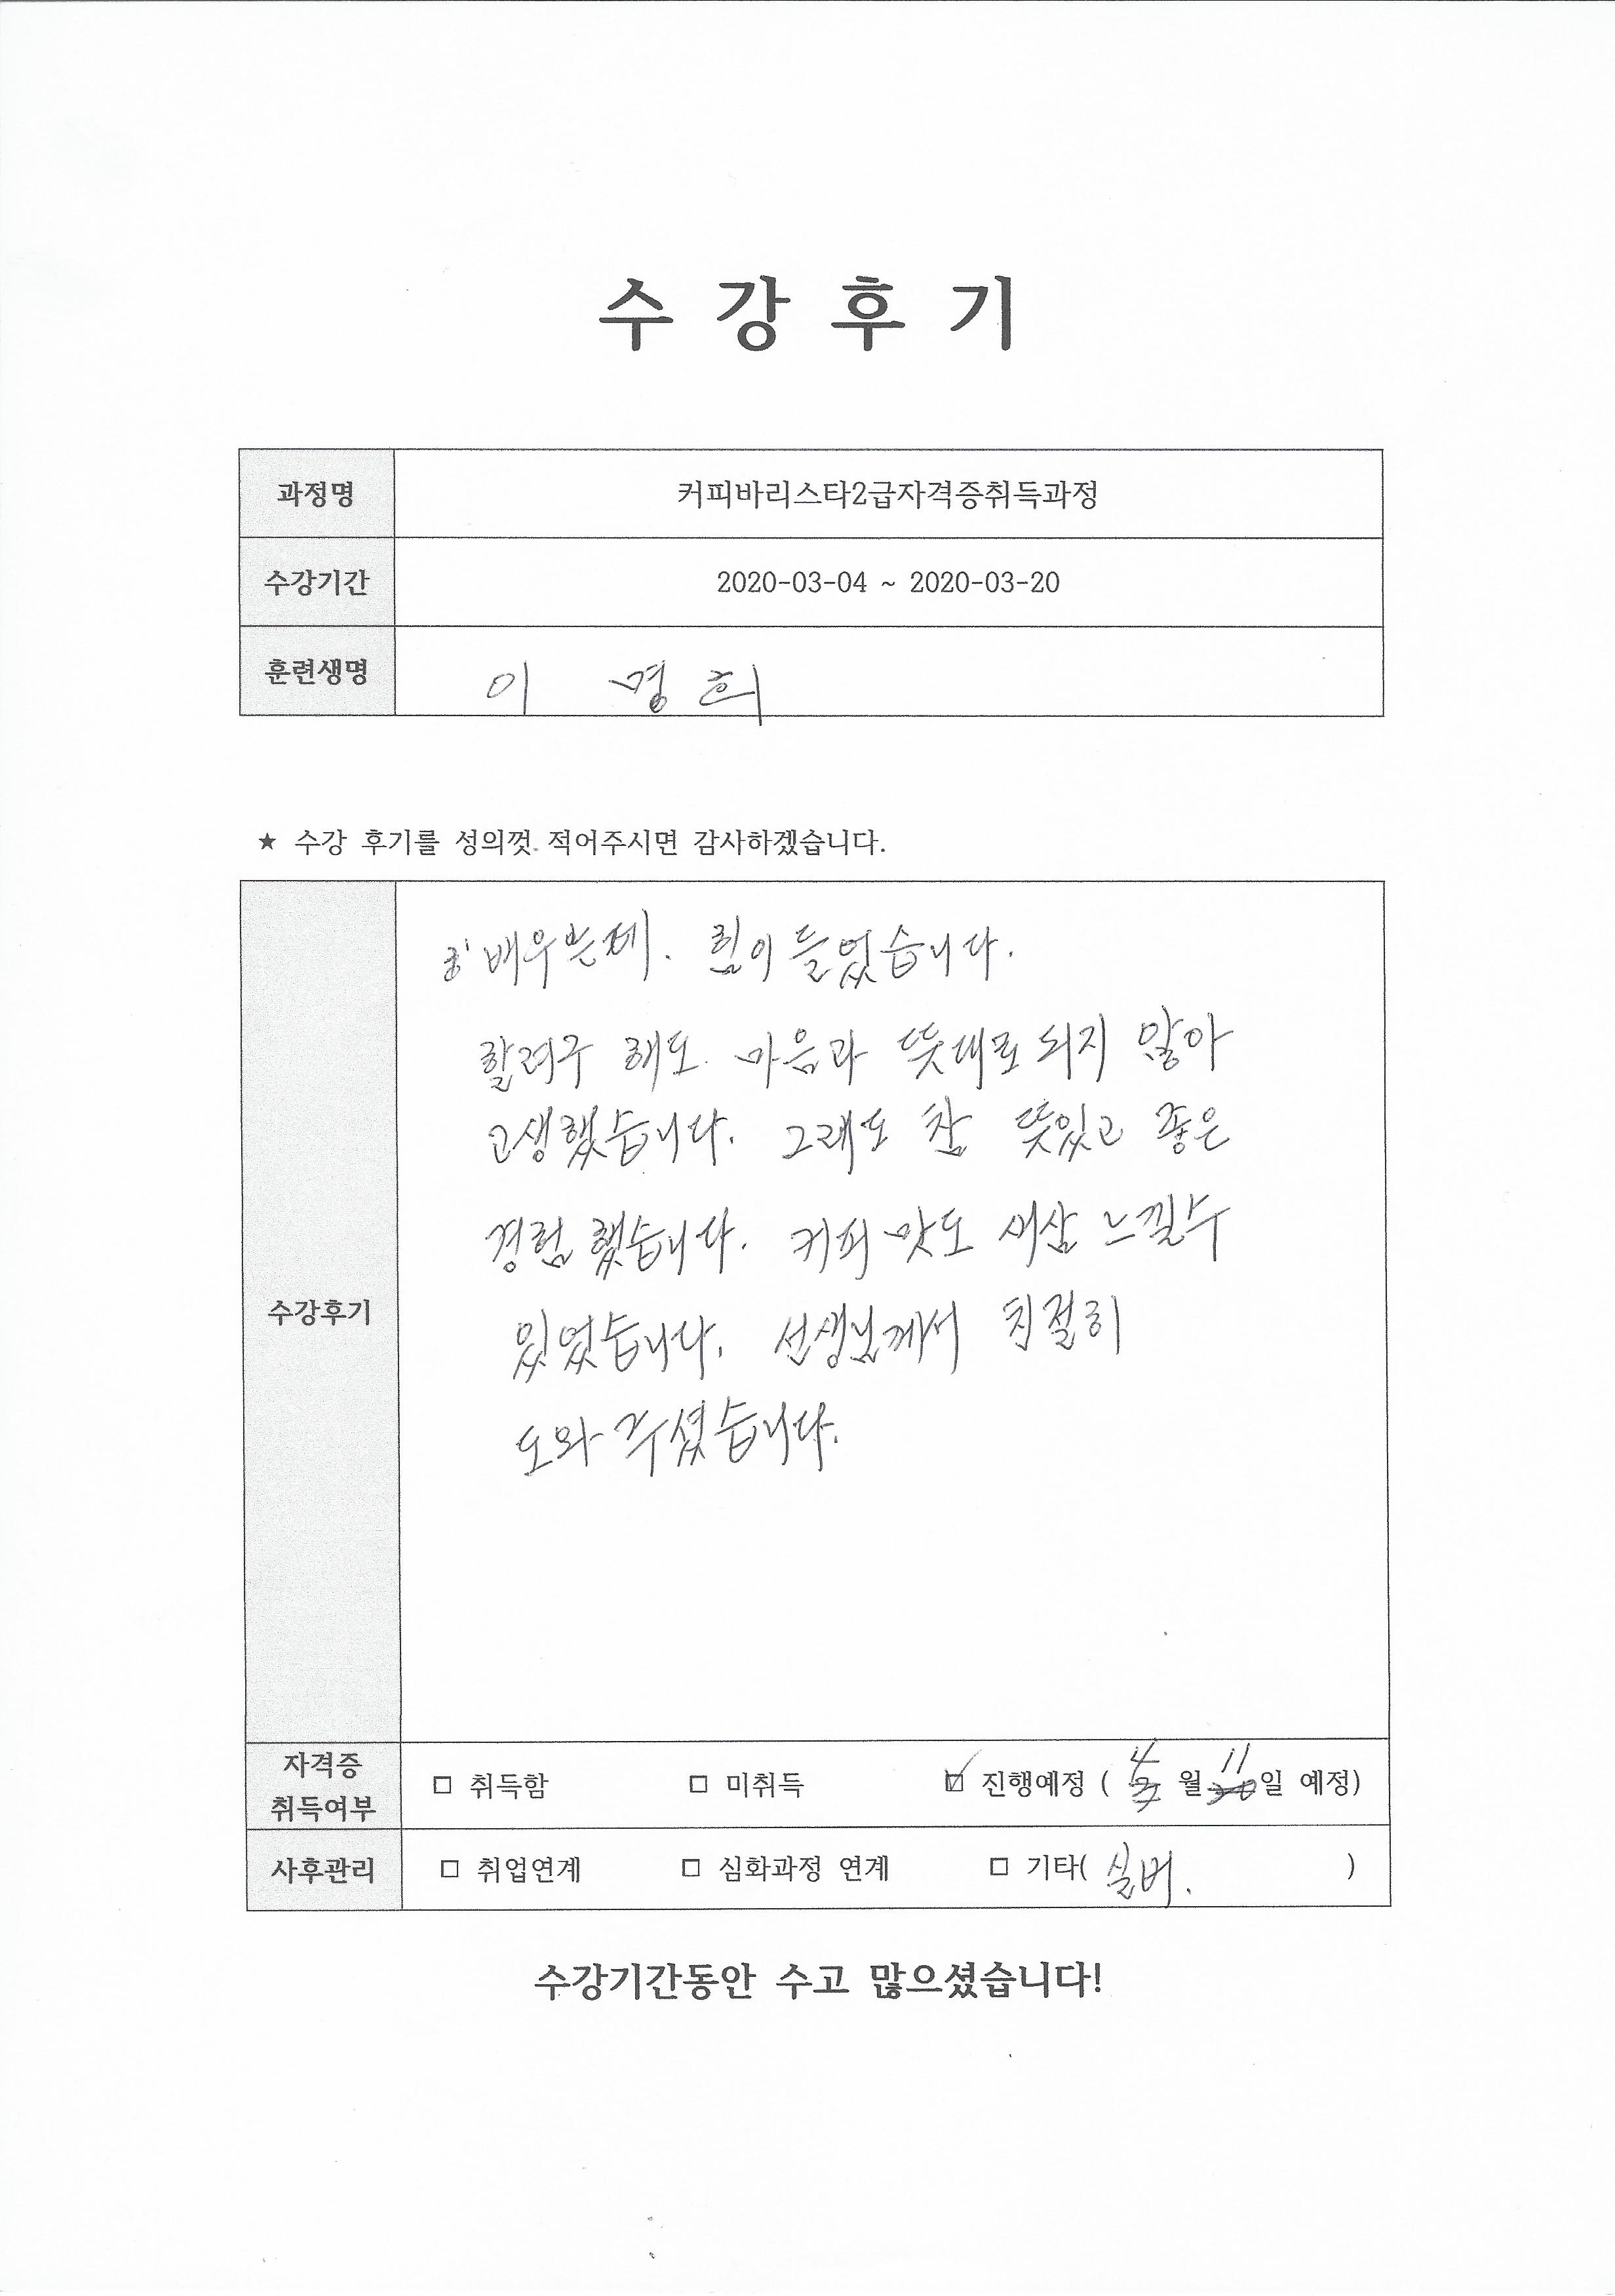 수 강 후 기
과정명 커피바리스타2급자격증취득과정
수강기간 2020-03-04 ~ 2020-03-20
훈련생명 이 명 희
★ 수강 후기를 성의껏 적어주시면 감사하겠습니다.
배우는데. 힘이 들었습니다.
할려구 해도 마음과 뜻대로 되지 않아
고생했습니다. 그래도 참 뜻있고 좋은
경험 했습니다. 커피 맛도 새삼 느낄수
수강후기
있었습니다. 선생님께서 친절히
도와 주셨습니다.
자격증
취득여부
□ 취득함 □ 미취득 ☑ 진행예정 ( 4 월 11 일 예정)
사후관리 □ 취업연계 □ 심화과정 연계 □ 기타( 실버. )
수강기간동안 수고 많으셨습니다!